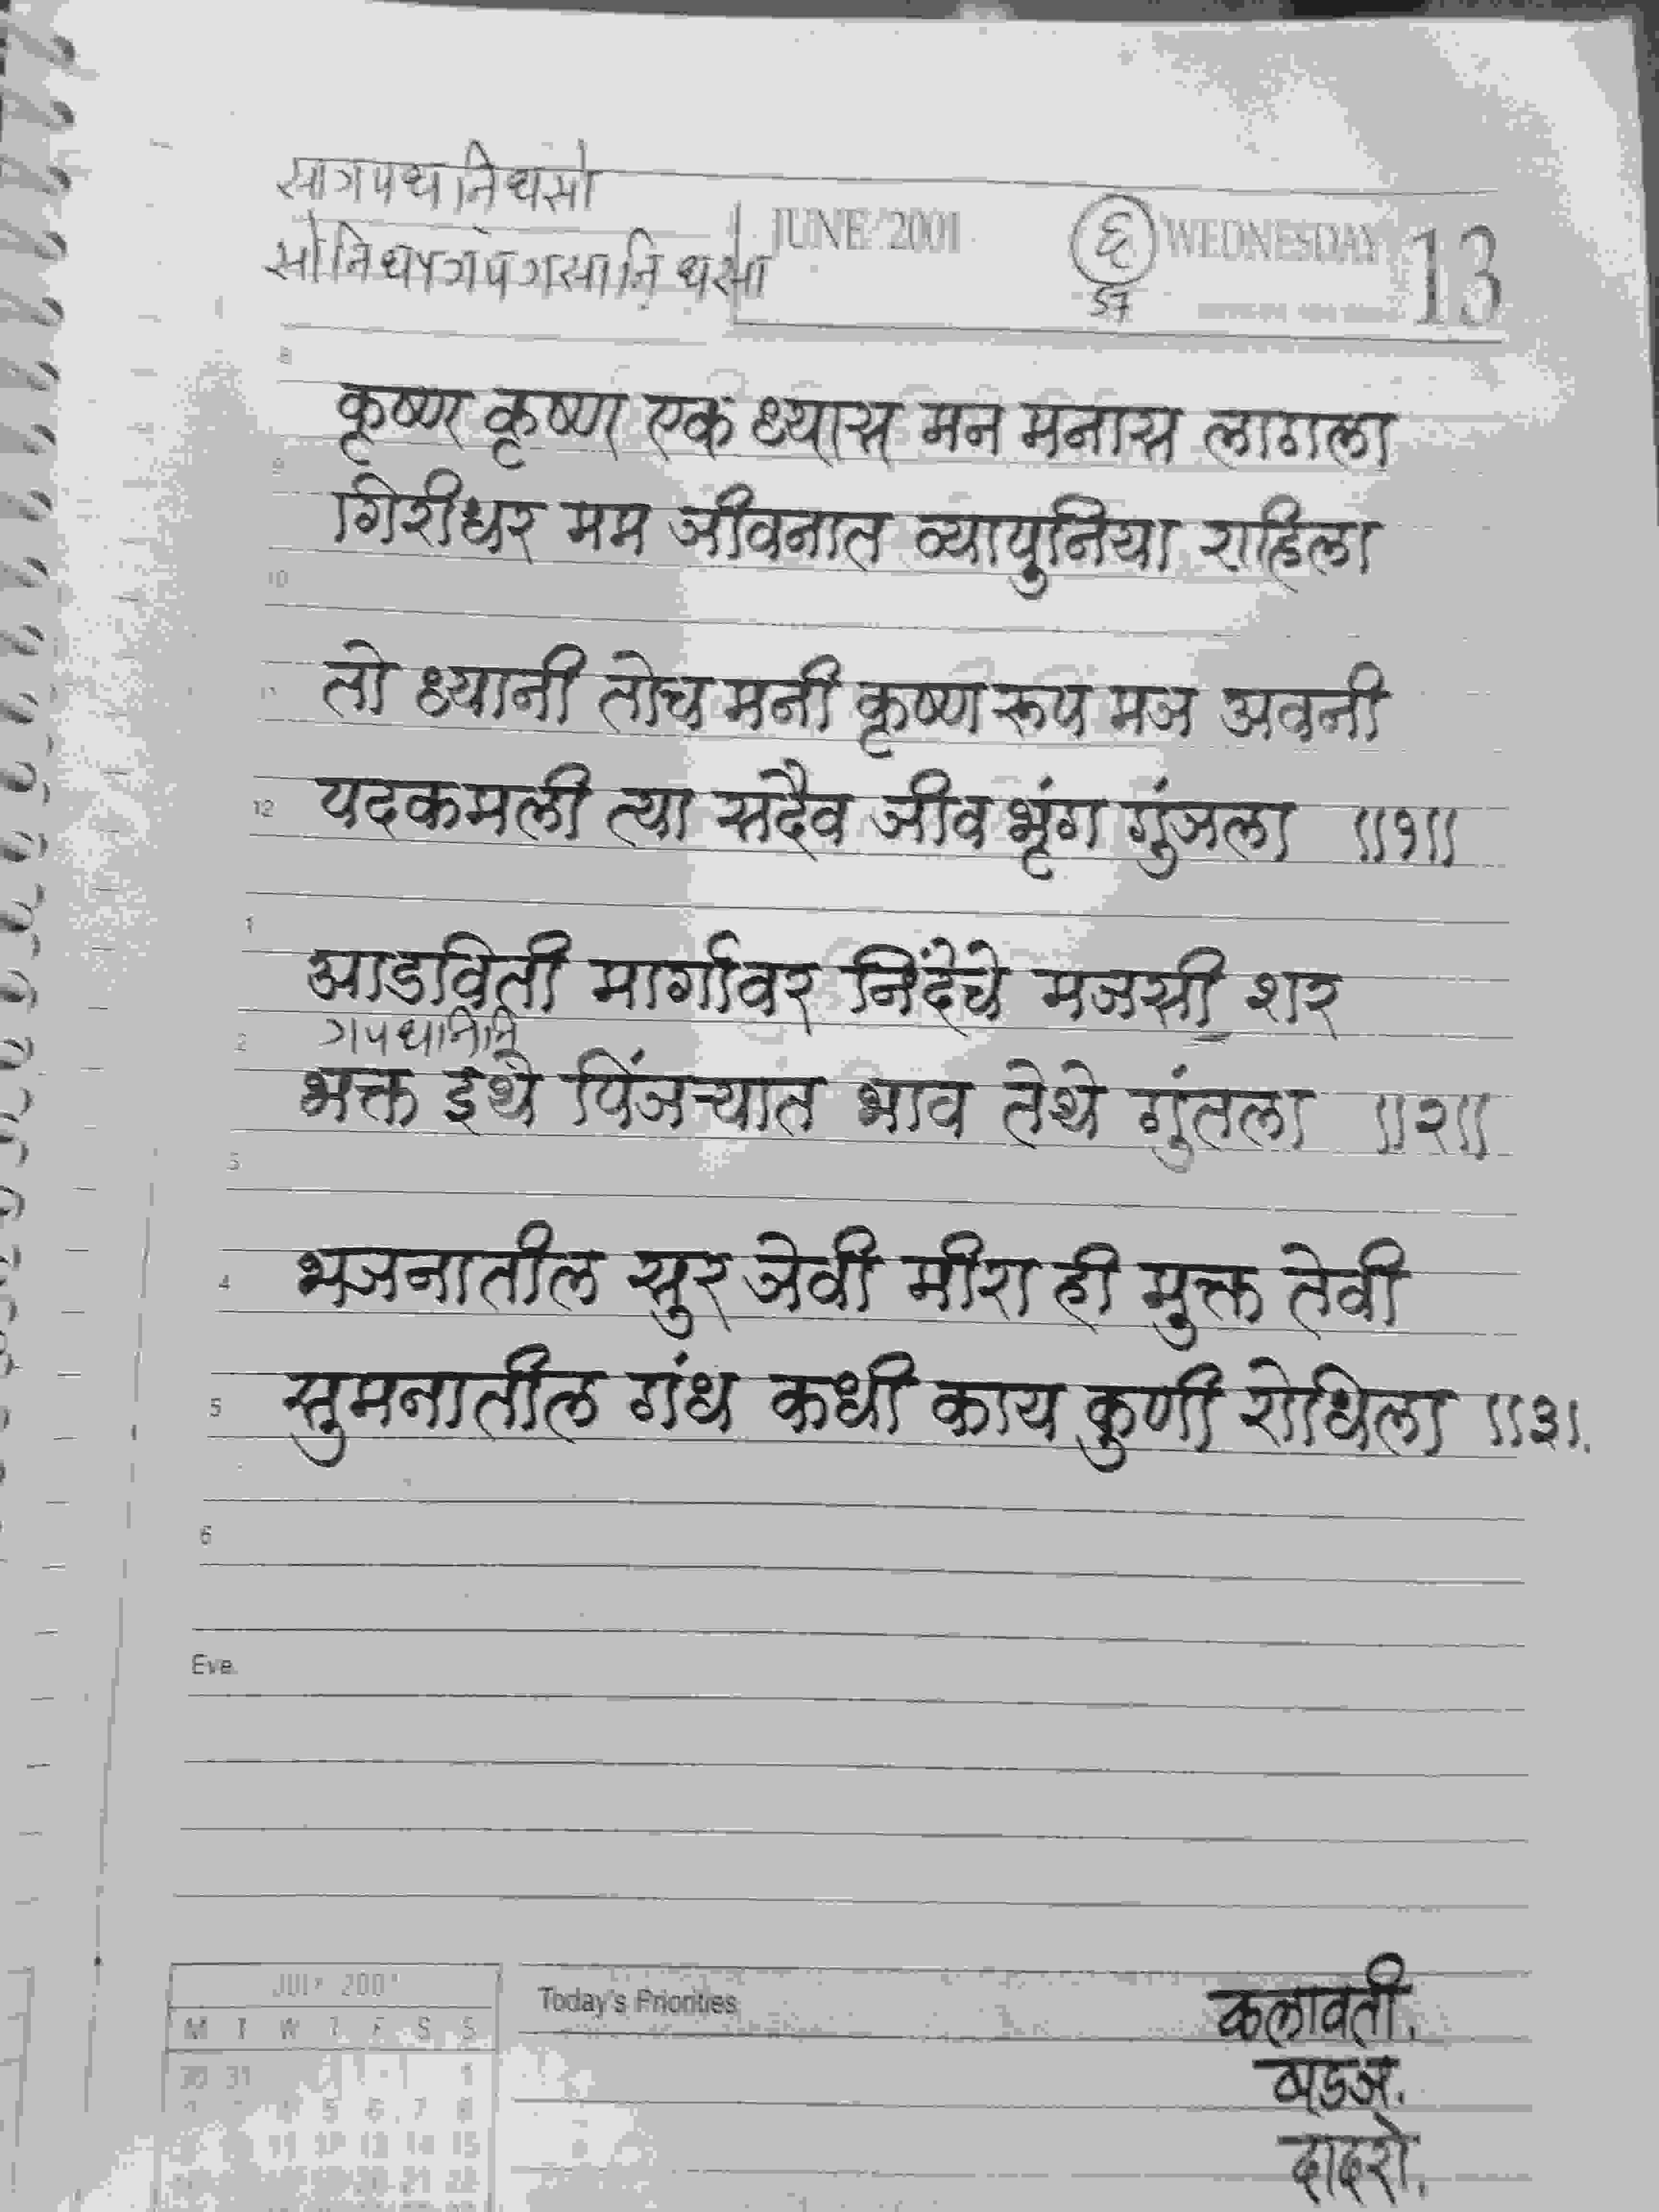 सा ग प ध नि ध सां
सां नि ध प ग प ग सा नि ध सा
JUNE 2001 ६ WEDNESDAY 13
57
8
कृष्ण कृष्ण एक ध्यास मन मनास लागला
9
गिरीधर मम जीवनात व्यापुनिया राहिला
10
11
तो ध्यानी तोच मनी कृष्ण रूप मज अवनी
12 पदकमली त्या सदैव जीव भृंग गुंजला ॥१॥
1
आडविती मार्गावर निंदेचे मजसी शर
2 ग प ध नि नि
भक्त इथे पिंजऱ्यात भाव तेथे गुंतला ॥२॥
3
4 भजनातील सुर जेवी मीरा ही मुक्त तेवी
5 सुमनातील गंध कधी काय कुणी रोधिला ॥३।.
6
Eve.
JULY 2001
Today's Priorities
M T W T F S S
30 31 1
5 6 7 8
11 12 13 14 15
कलावती.
षडज.
दादरो.